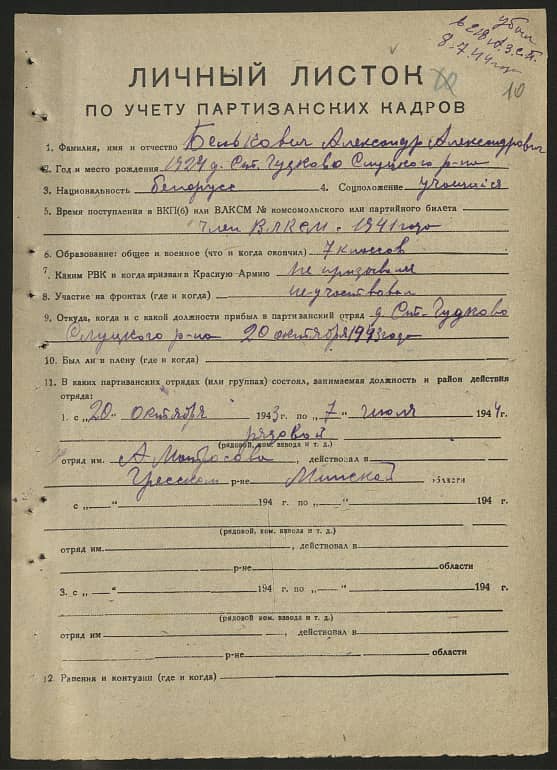 убыл
в СШ А.З.С.П.
8-7-44 года
10
ЛИЧНЫЙ ЛИСТОК
ПО УЧЕТУ ПАРТИЗАНСКИХ КАДРОВ
1. Фамилия, имя и отчество Бенькович Александр Александрович
2. Год и место рождения 1924 д. Спт. Гудково Слуцкого р-на
3. Национальность белорусс 4. Соцположение учащийся
5. Время поступления в ВКП(б) или ВЛКСМ № комсомольского или партийного билета
Член ВЛКСМ. 1941 года
6. Образование: общее и военное (что и когда окончил) 7 классов
7. Каким РВК и когда призван в Красную Армию не призывался
8. Участие на фронтах (где и когда) не участвовал
9. Откуда, когда и с какой должности прибыл в партизанский отряд д. Спт-Гудково
Слуцкого р-на 20 октября 1943 года
10. Был ли в плену (где и когда)
11. В каких партизанских отрядах (или группах) состоял, занимаемая должность и район действия
отряда:
1. с „20“ октября 1943 г. по „7“ июля 1944 г.
рядовой
(рядовой, ком. взвода и т. д.)
отряд им. А. Матросова, действовал в
Гресском р-не Минской области
с „—“ 194 г. по „—“ 194 г.
(рядовой, ком. взвода и т. д.)
отряд им. , действовал в
р-не области
3. с „—“ 194 г. по „—“ 194 г.
(рядовой, ком. взвода и т. д.)
отряд им , действовал в
р-не области
12 Ранения и контузии (где и когда)